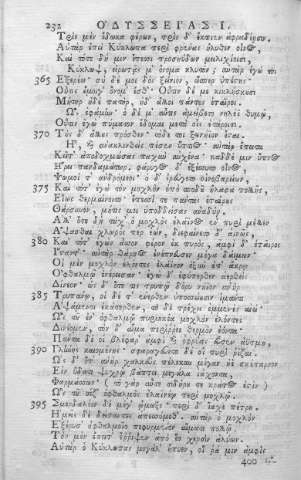 232 ὈΔΥΣΣΕΊΑΣ Ι.
Τρὶς μὲν ἔδωκα φέρων, τρὶς δ' ἔκπιεν ἀφραδίῃσιν.
Αὐτὰρ ἐπεὶ Κύκλωπα περὶ φρένας ἤλυθεν οἶνος,
Καὶ τότε δή μιν ἔπεσσι προσηύδων μειλιχίοισι,
Κύκλωψ, εἰρωτᾷς μ' ὄνομα κλυτόν; αὐτὰρ ἐγώ τοι
365 Ἐξερέω· σὺ δέ μοι δὸς ξείνιον, ὥσπερ ὑπέστης·
Οὖτις ἔμοιγ' ὄνομ' ἐστί· Οὖτιν δέ με κικλήσκουσι
Μήτηρ ἠδὲ πατὴρ, ἠδ' ἄλλοι πάντες ἑταῖροι.
Ὣς ἐφάμην· ὁ δέ μ' αὖτις ἀμείβετο νηλέϊ θυμῷ,
Οὖτιν ἐγὼ πύματον ἔδομαι μετὰ οἷς ἑτάροισι,
370 Τοὺς δ' ἄλλους πρόσθεν· τόδε τοι ξεινήϊον ἔσται.
Ἦ, καὶ ἀνακλινθεὶς πέσεν ὕπτιος· αὐτὰρ ἔπειτα
Κεῖτ' ἀποδοχμώσας παχὺν αὐχένα· καδδέ μιν ὕπνος
ᾝρει πανδαμάτωρ, φάρυγος δ' ἐξέσσυτο οἶνος,
Ψωμοί τ' ἀνδρόμεοι· ὁ δ' ἐρεύγετο οἰνοβαρείων.
375 Καὶ τότ' ἐγὼ τὸν μοχλὸν ὑπὸ σποδοῦ ἤλασα πολλῆς,
Εἵως θερμαίνοιτο· ἔπεσσί τε πάντας ἑταίρους
Θάρσυνον, μήτις μοι ὑποδδείσας ἀναδύῃ.
Ἀλλ' ὅτε δὴ τάχ' ὁ μοχλὸς ἐλάϊνος ἐν πυρὶ μέλλεν
Ἅψασθαι χλωρός περ ἐὼν, διεφαίνετο δ' αἰνῶς·
380 Καὶ τότ' ἐγὼν ἆσσον φέρον ἐκ πυρὸς, ἀμφὶ δ' ἑταῖροι
Ἵσταντ'· αὐτὰρ θάρσος ἐνέπνευσεν μέγα δαίμων·
Οἱ μὲν μοχλὸν ἑλόντες ἐλάϊνον ὀξὺν ἐπ' ἄκρῳ
Ὀφθαλμῷ ἐνέρεισαν· ἐγὼ δ' ἐφύπερθεν ἀερθεὶς
Δίνεον· ὡς δ' ὅτε τις τρυπῷ δόρυ νήϊον ἀνὴρ
385 Τρυπάνῳ, οἱ δέ τ' ἔνερθεν ὑποσσείουσιν ἱμάντι
Ἁψάμενοι ἑκάτερθεν, τὸ δὲ τρέχει ἐμμενὲς αἰεί·
Ὣς τοῦ ἐν ὀφθαλμῷ πυριήκεα μοχλὸν ἑλόντες
Δινέομεν, τὸν δ' αἷμα περίῤῥεε θερμὸν ἐόντα·
Πάντα δέ οἱ βλέφαρ' ἀμφὶ καὶ ὀφρύας εὗσεν ἀϋτμὴ,
390 Γλήνης καιομένης· σφαραγεῦντο δέ οἱ πυρὶ ῥίζαι.
Ὡς δ' ὅτ' ἀνὴρ χαλκεὺς πέλεκυν μέγαν ἠὲ σκέπαρνον
Εἰν ὕδατι ψυχρῷ βάπτει μεγάλα ἰάχοντα,
Φαρμάσσων· (τὸ γὰρ αὖτε σιδήρου γε κράτος ἐστίν)
Ὣς τοῦ σίζ' ὀφθαλμὸς ἐλαϊνέῳ περὶ μοχλῷ.
395 Σμερδαλέον δὲ μέγ' ᾤμωξε· περὶ δ' ἴαχε πέτρη.
Ἡμεῖς δὲ δείσαντες ἀπεσσύμεθ'. αὐτὰρ ὁ μοχλὸν
Ἐξέρυσ' ὀφθαλμοῖο πεφυρμένον αἵματι πολλῷ.
Τὸν μὲν ἔπειτ' ἔῤῥιψεν ἀπὸ ἕο χερσὶν ἀλύων.
Αὐτὰρ ὁ Κύκλωπας μεγάλ' ἤπυεν, οἵ ῥά μιν ἀμφὶς
400